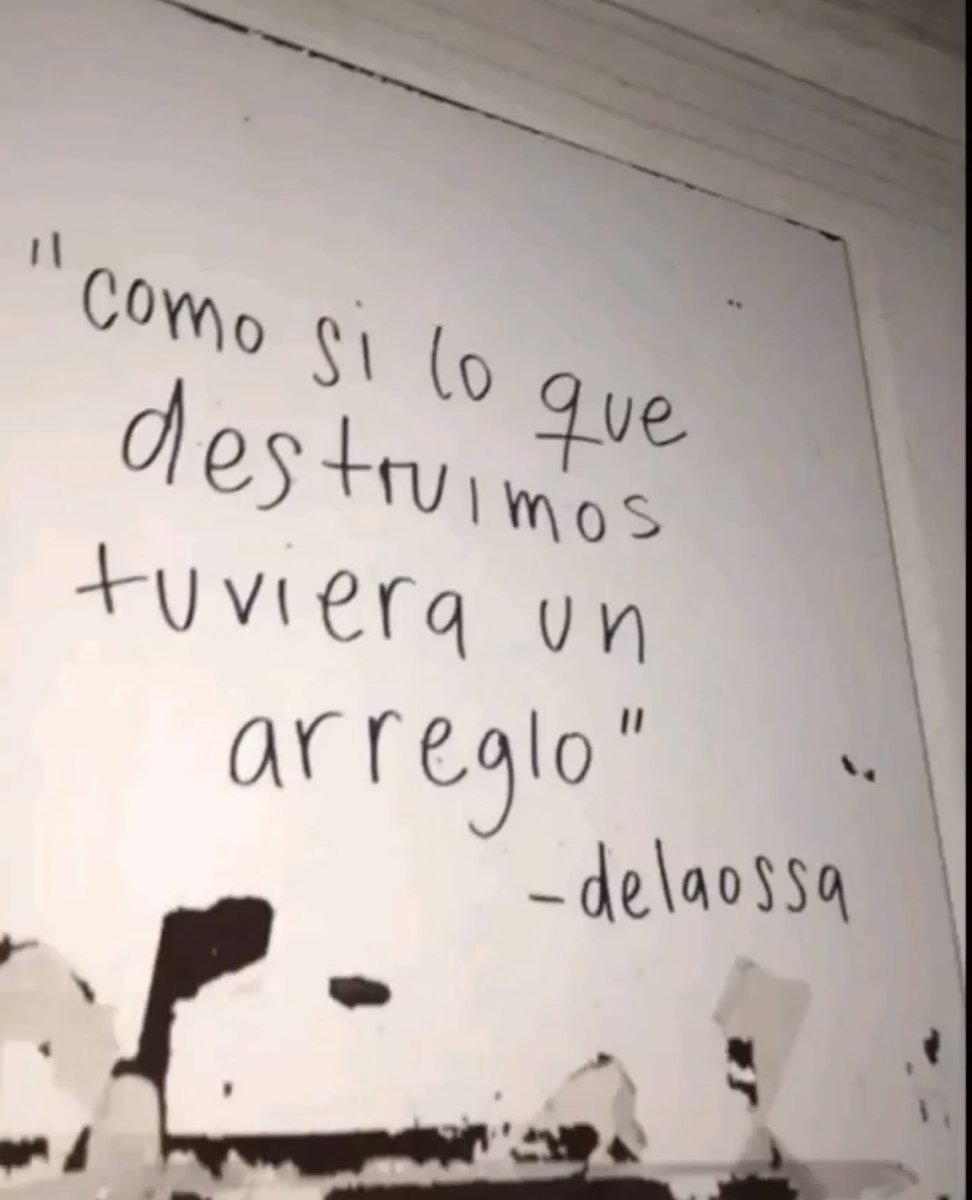 "como si lo que
destruimos
tuviera un
arreglo"
-delaossa